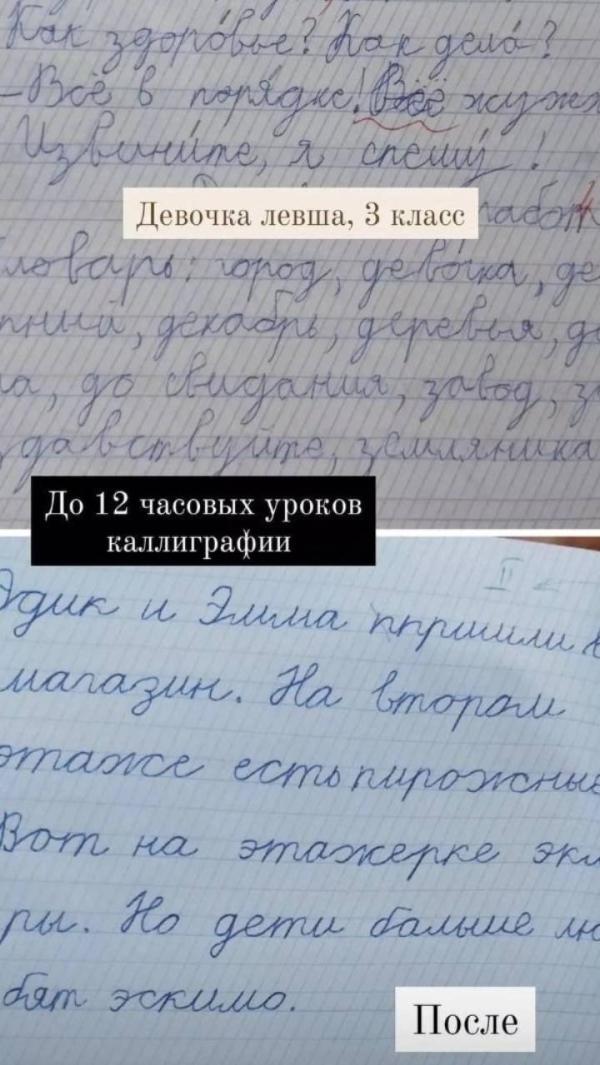 Как здоровье? Как дела́?
– Всё в поря́дке! Всё жужж
Извини́те, я спешу́!
Девочка левша, 3 класс
работ
ловарь: город, дево́чка, де
пный, декабрь, деревья, до
на, до свидания, завод, з
здавствуйте, земляника
До 12 часовых уроков
каллиграфии
II
Эдик и Эмма ппришли в
магазин. На втором
этаже есть пирожные
Вот на этажерке экл
ры. Но дети больше лю
бят эскимо.
После